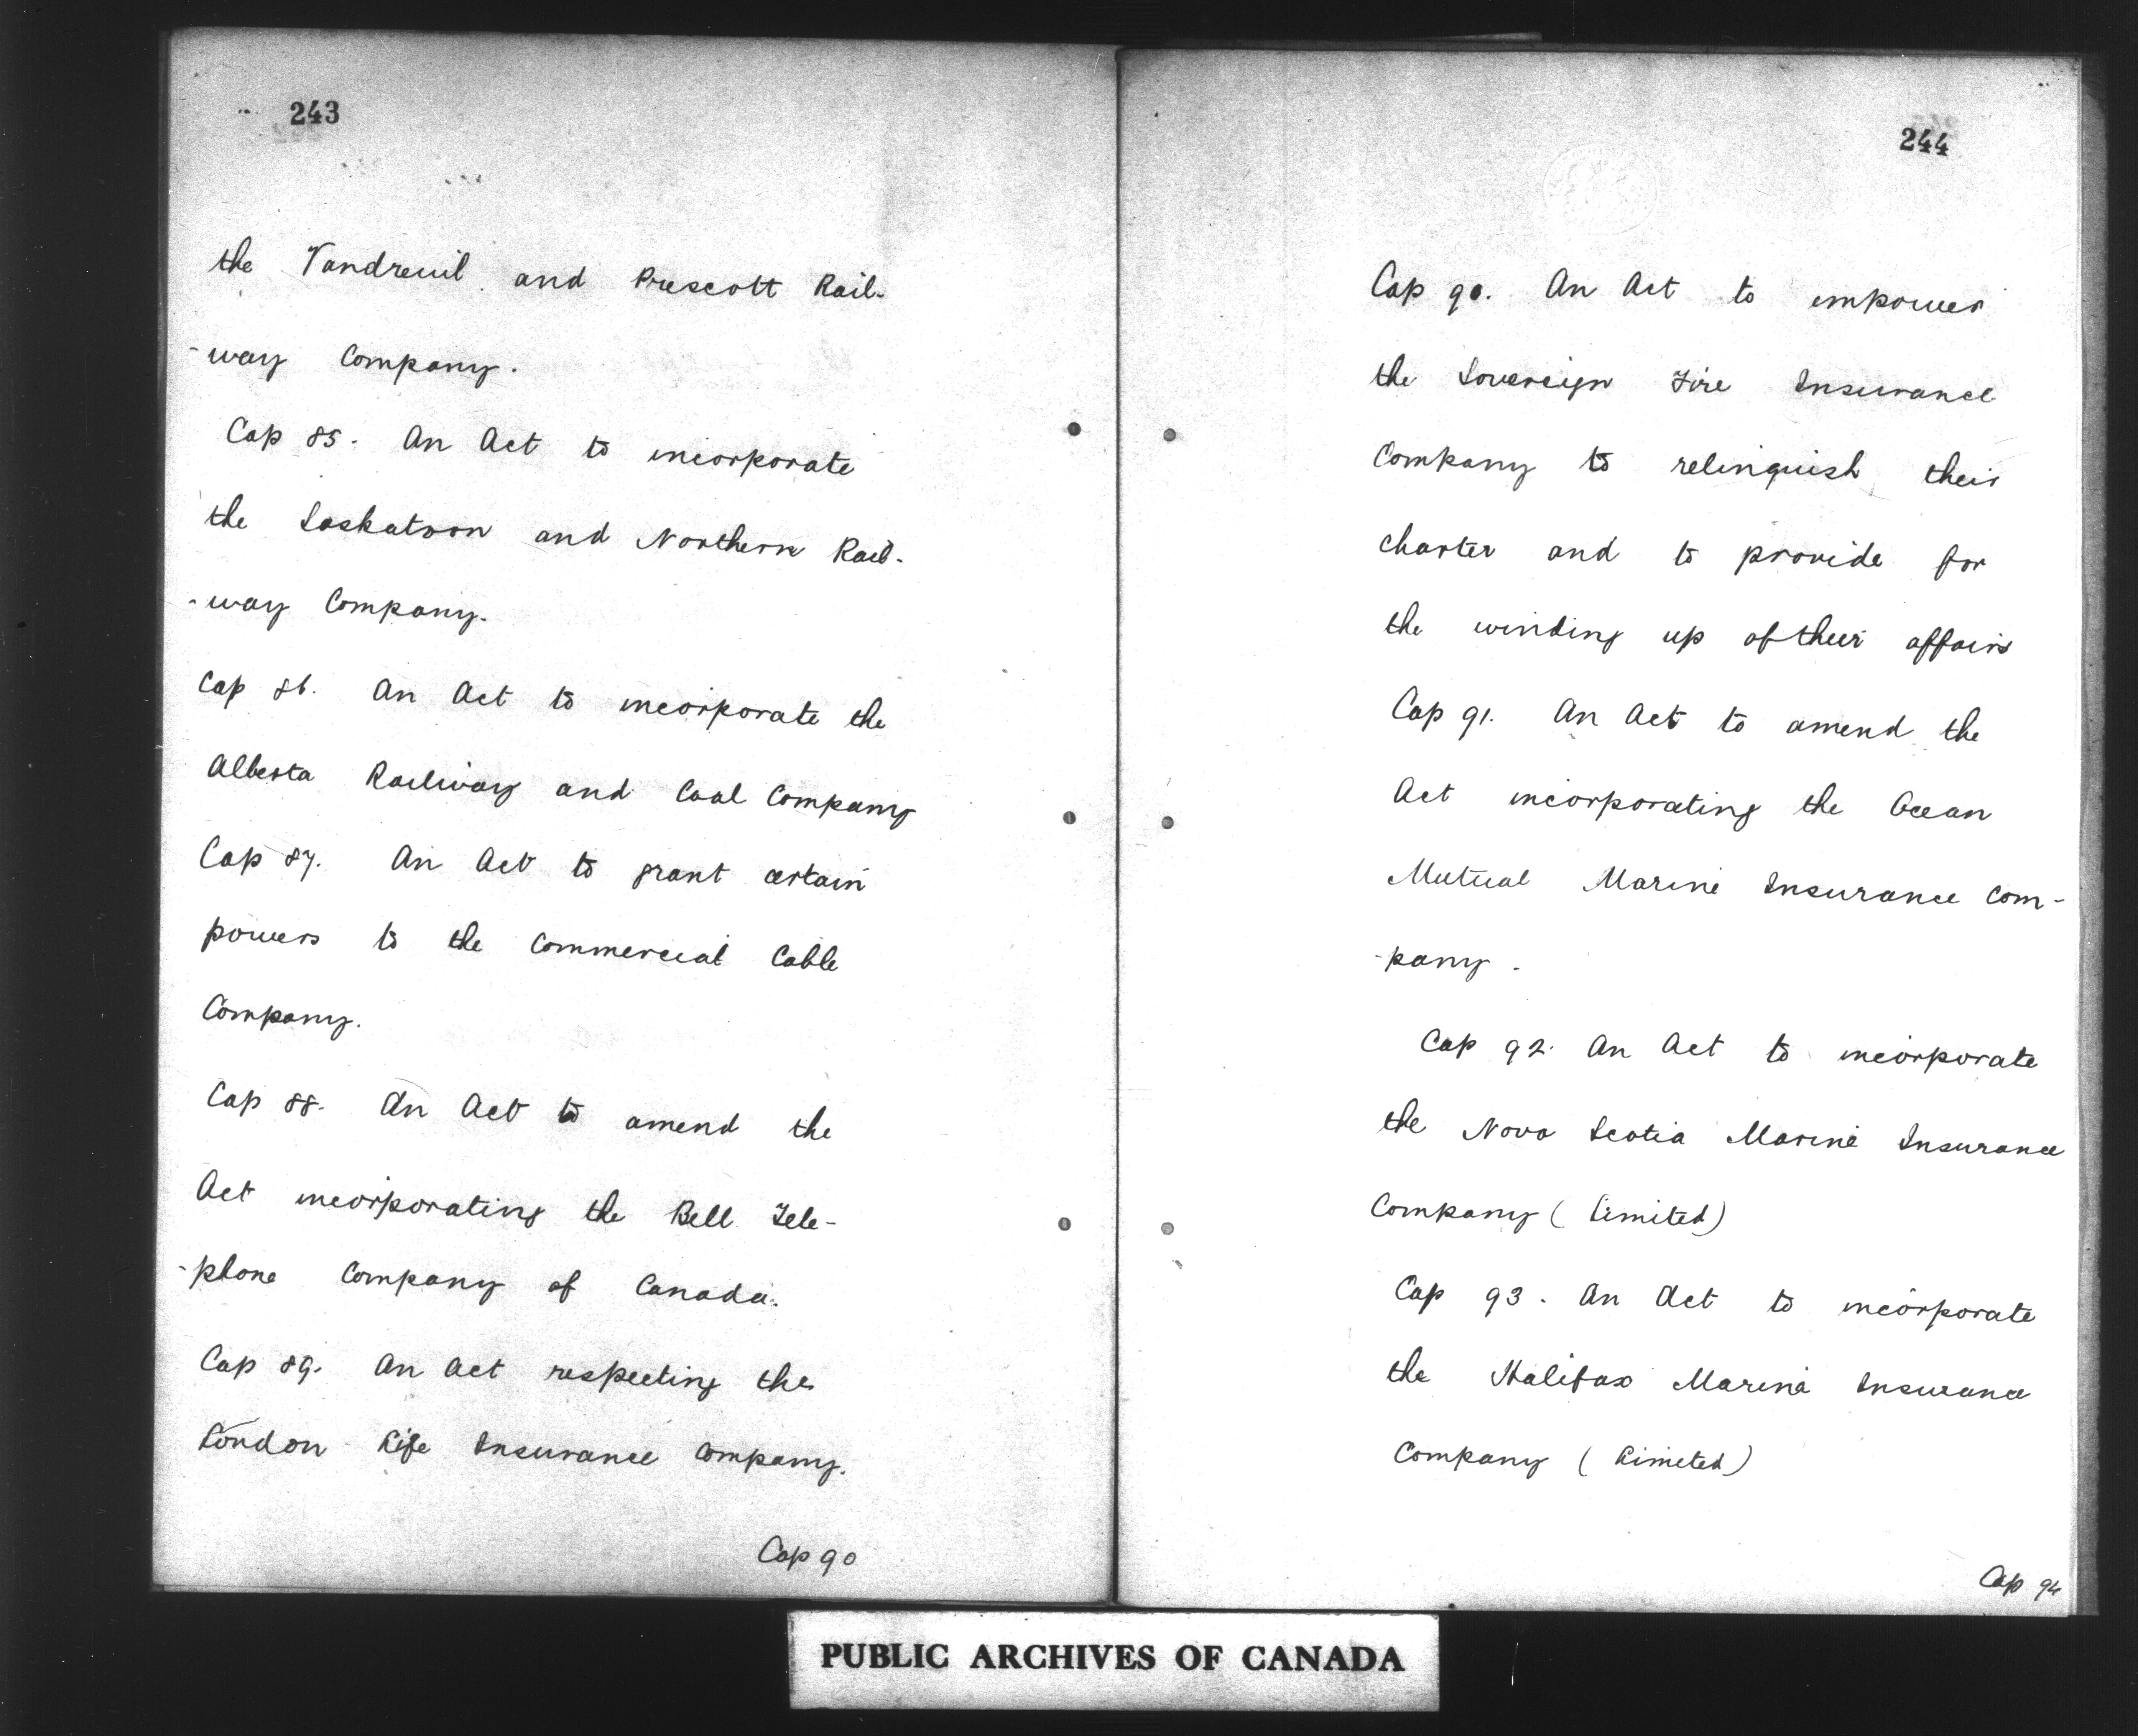 243
the Vaudreuil and Prescott Rail-
-way Company.
Cap 85. An Act to incorporate
the Saskatoon and Northern Rail-
-way Company.
Cap 86. An Act to incorporate the
Alberta Railway and Coal Company
Cap 87. An Act to grant certain
powers to the Commercial Cable
Company.
Cap 88. An Act to amend the
Act incorporating the Bell Tele-
-phone Company of Canada.
Cap 89. An Act respecting the
London Life Insurance Company.
Cap 90
244
Cap 90. An Act to empower
the Sovereign Fire Insurance
Company to relinquish their
charter and to provide for
the winding up of their affairs
Cap 91. An Act to amend the
Act incorporating the Ocean
Mutual Marine Insurance Com-
-pany.
Cap 92. An Act to incorporate
the Nova Scotia Marine Insurance
Company (Limited)
Cap 93. An Act to incorporate
the Halifax Marine Insurance
Company (Limited)
Cap 94
PUBLIC ARCHIVES OF CANADA